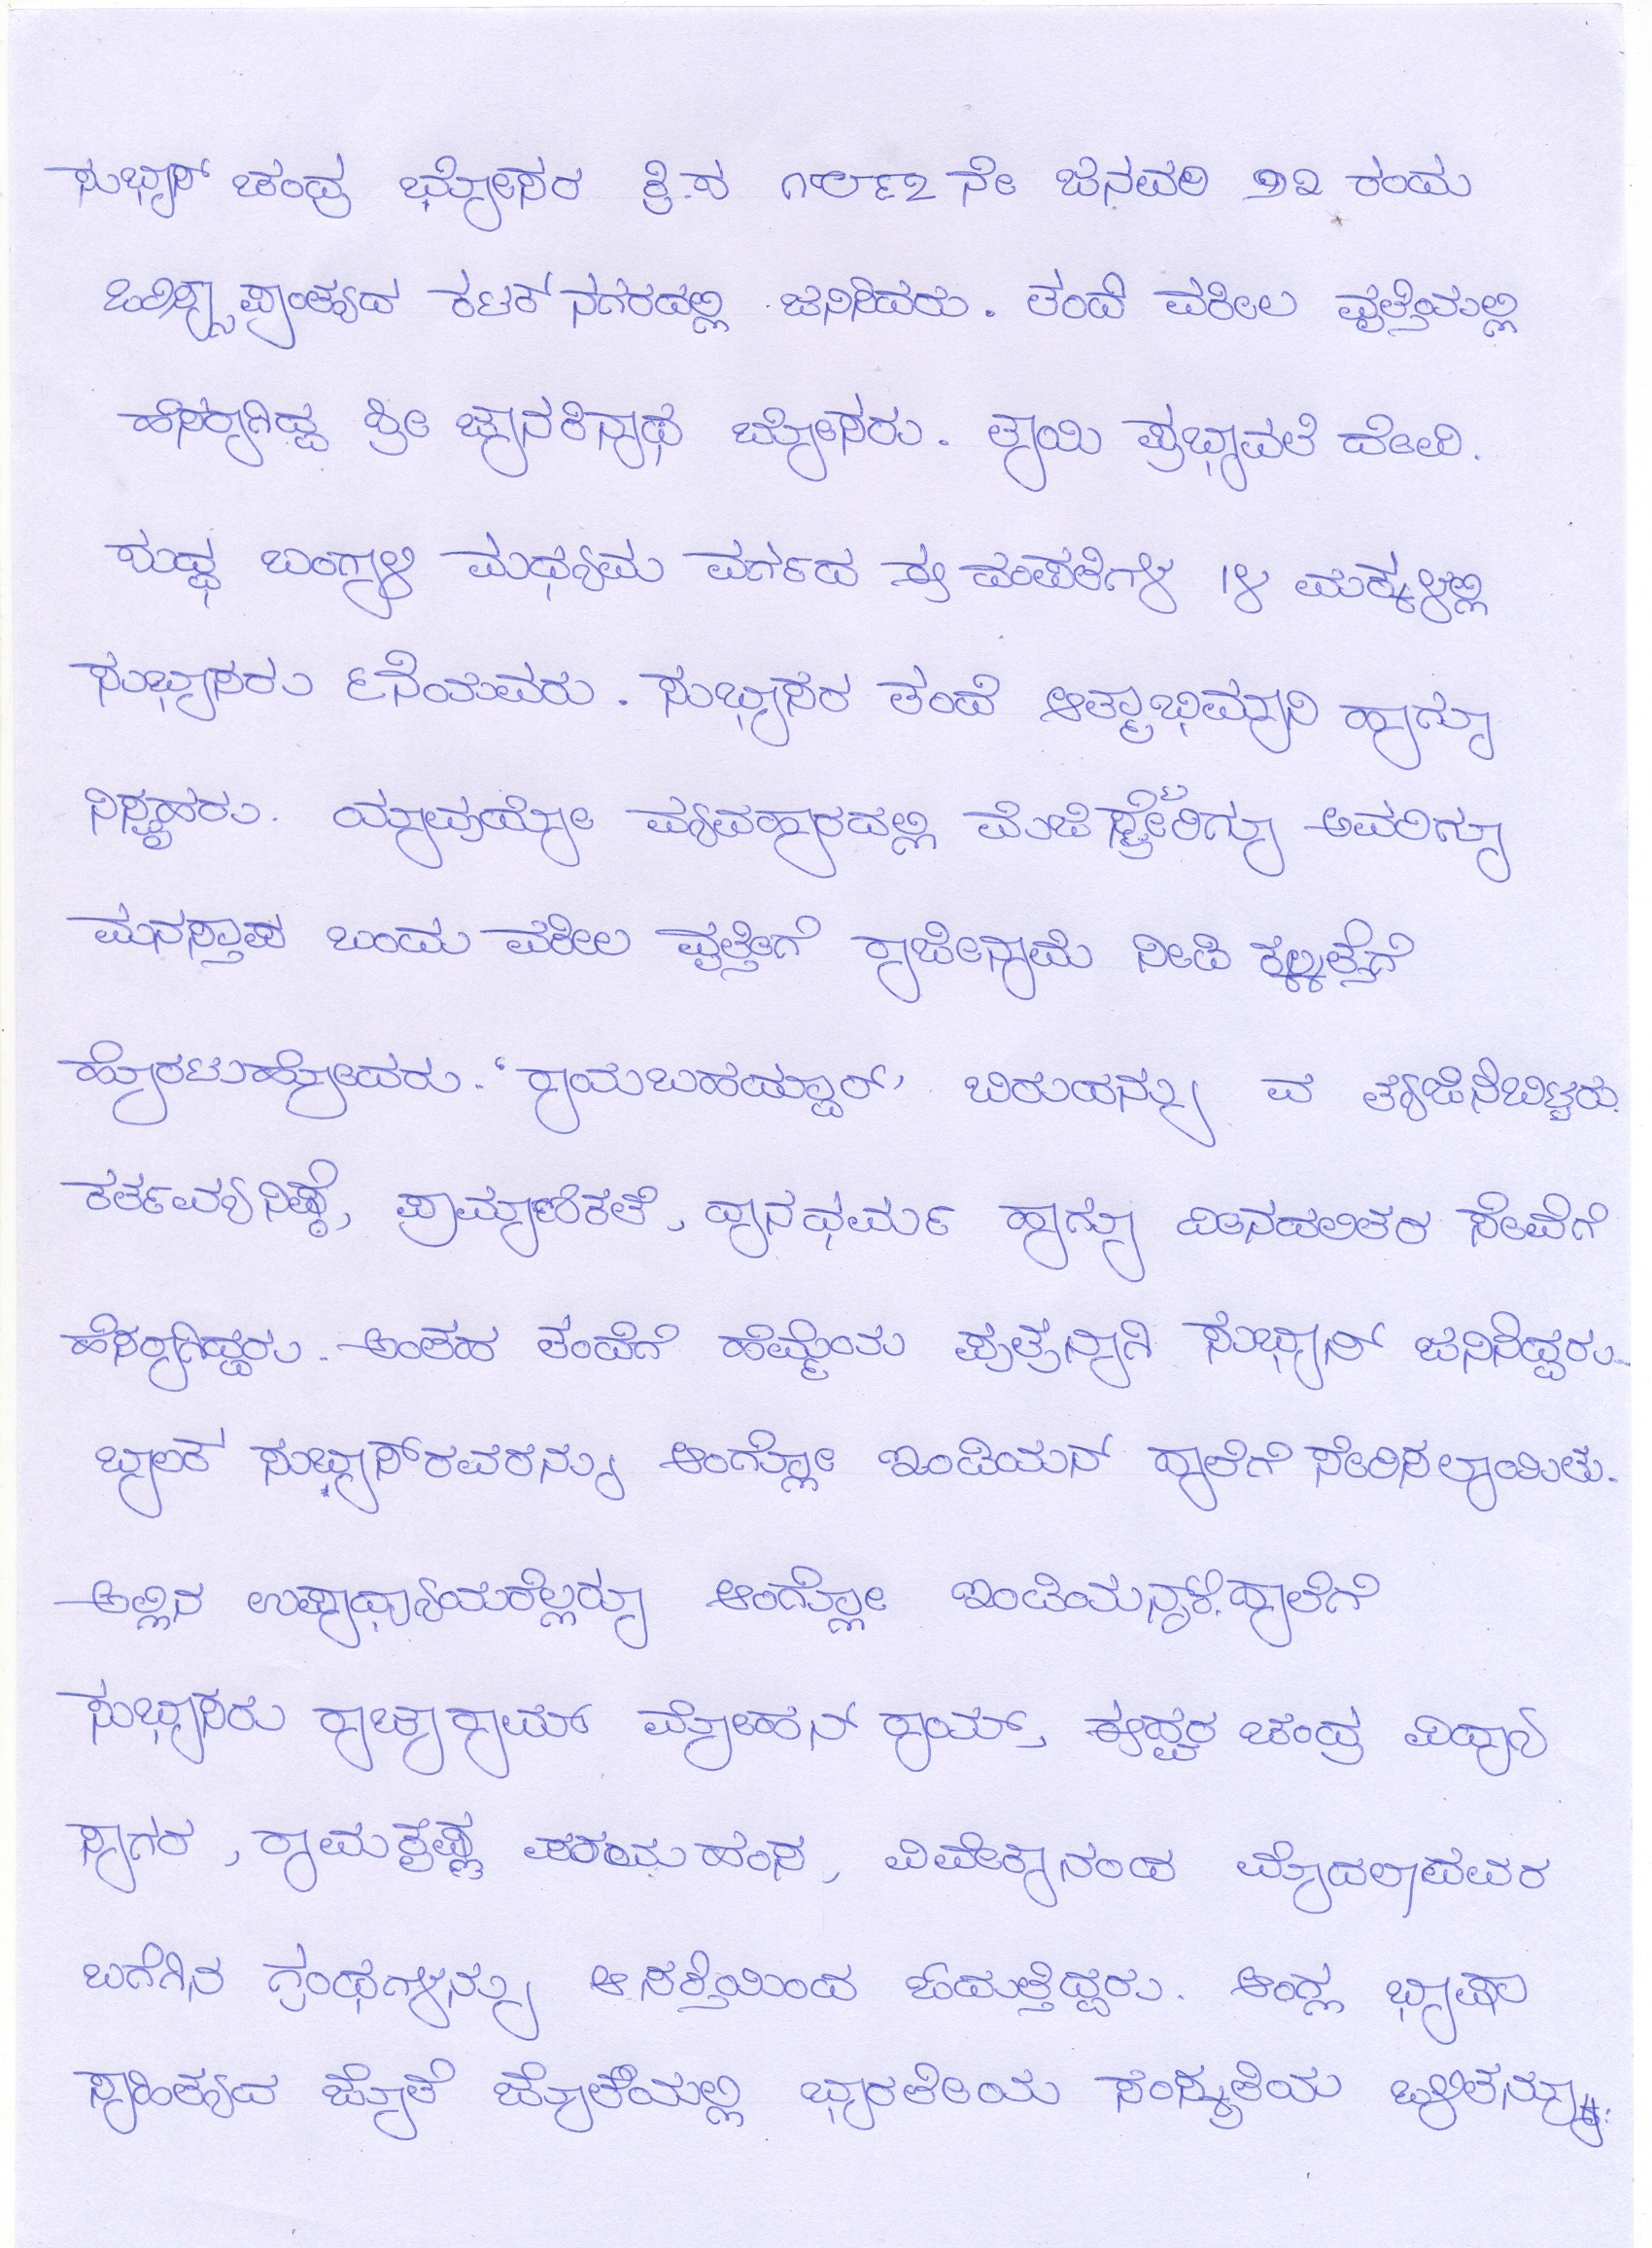 ಸುಭಾಸ್ ಚಂದ್ರ ಭೋಸರ ಕ್ರಿ.ಶ ೧೮೯೭ನೇ ಜನವರಿ ೨೩ ರಂದು
ಒರಿಸ್ಸಾ ಪ್ರಾಂತ್ಯದ ಕಟಕ್ ನಗರದಲ್ಲಿ ಜನಿಸಿದರು. ತಂದೆ ವಕೀಲ ವೃತ್ತಿಯಲ್ಲಿ
ಹೆಸರಾಗಿದ್ದ ಶ್ರೀ ಜಾನಕಿನಾಥ ಬೋಸರು. ತಾಯಿ ಪ್ರಭಾವತಿ ದೇವಿ.
ಶುದ್ಧ ಬಂಗಾಳಿ ಮಧ್ಯಮ ವರ್ಗದ ಈ ದಂಪತಿಗಳ ೧೪ ಮಕ್ಕಳಲ್ಲಿ
ಸುಭಾಸರು ೯ನೆಯವರು. ಸುಭಾಸರ ತಂದೆ ಆತ್ಮಾಭಿಮಾನಿ ಹಾಗೂ
ನಿಸ್ಪೃಹರು. ಯಾವುದೋ ವ್ಯವಹಾರದಲ್ಲಿ ಮೆಜಿಸ್ಟ್ರೇಟರಿಗೂ ಅವರಿಗೂ
ಮನಸ್ತಾಪ ಬಂದು ವಕೀಲ ವೃತ್ತಿಗೆ ರಾಜೀನಾಮೆ ನೀಡಿ ಕಲ್ಕತ್ತೆಗೆ
ಹೊರಟುಹೋದರು. 'ರಾಯಬಹದ್ದೂರ್' ಬಿರುದನ್ನು ವ ತ್ಯಜಿಸಿಬಿಟ್ಟರು.
ಕರ್ತವ್ಯನಿಷ್ಠೆ, ಪ್ರಾಮಾಣಿಕತೆ, ದಾನಧರ್ಮ ಹಾಗೂ ದೀನದಲಿತರ ಸೇವೆಗೆ
ಹೆಸರಾಗಿದ್ದರು. ಅಂತಹ ತಂದೆಗೆ ಹೆಮ್ಮೆಯ ಪುತ್ರನಾಗಿ ಸುಭಾಸ್ ಜನಿಸಿದ್ದರು.
ಬಾಲಕ ಸುಭಾಸ್‌ರವರನ್ನು ಆಂಗ್ಲೋ ಇಂಡಿಯನ್ ಶಾಲೆಗೆ ಸೇರಿಸಲಾಯಿತು.
ಅಲ್ಲಿನ ಉಪಾಧ್ಯಾಯರೆಲ್ಲರೂ ಆಂಗ್ಲೋ ಇಂಡಿಯನ್ನರೆ. ಶಾಲೆಗೆ
ಸುಭಾಸರು ರಾಜಾರಾಮ್ ಮೋಹನ್ ರಾಯ್, ಈಶ್ವರ ಚಂದ್ರ ವಿದ್ಯಾ
ಸಾಗರ, ರಾಮಕೃಷ್ಣ ಪರಮಹಂಸ, ವಿವೇಕಾನಂದ ಮೊದಲಾದವರ
ಬಗೆಗಿನ ಗ್ರಂಥಗಳನ್ನು ಆಸಕ್ತಿಯಿಂದ ಓದುತ್ತಿದ್ದರು. ಆಂಗ್ಲ ಭಾಷಾ
ಸಾಹಿತ್ಯದ ಜೊತೆ ಜೊತೆಯಲ್ಲಿ ಭಾರತೀಯ ಸಂಸ್ಕೃತಿಯ ಒಳಿತನ್ನೂ